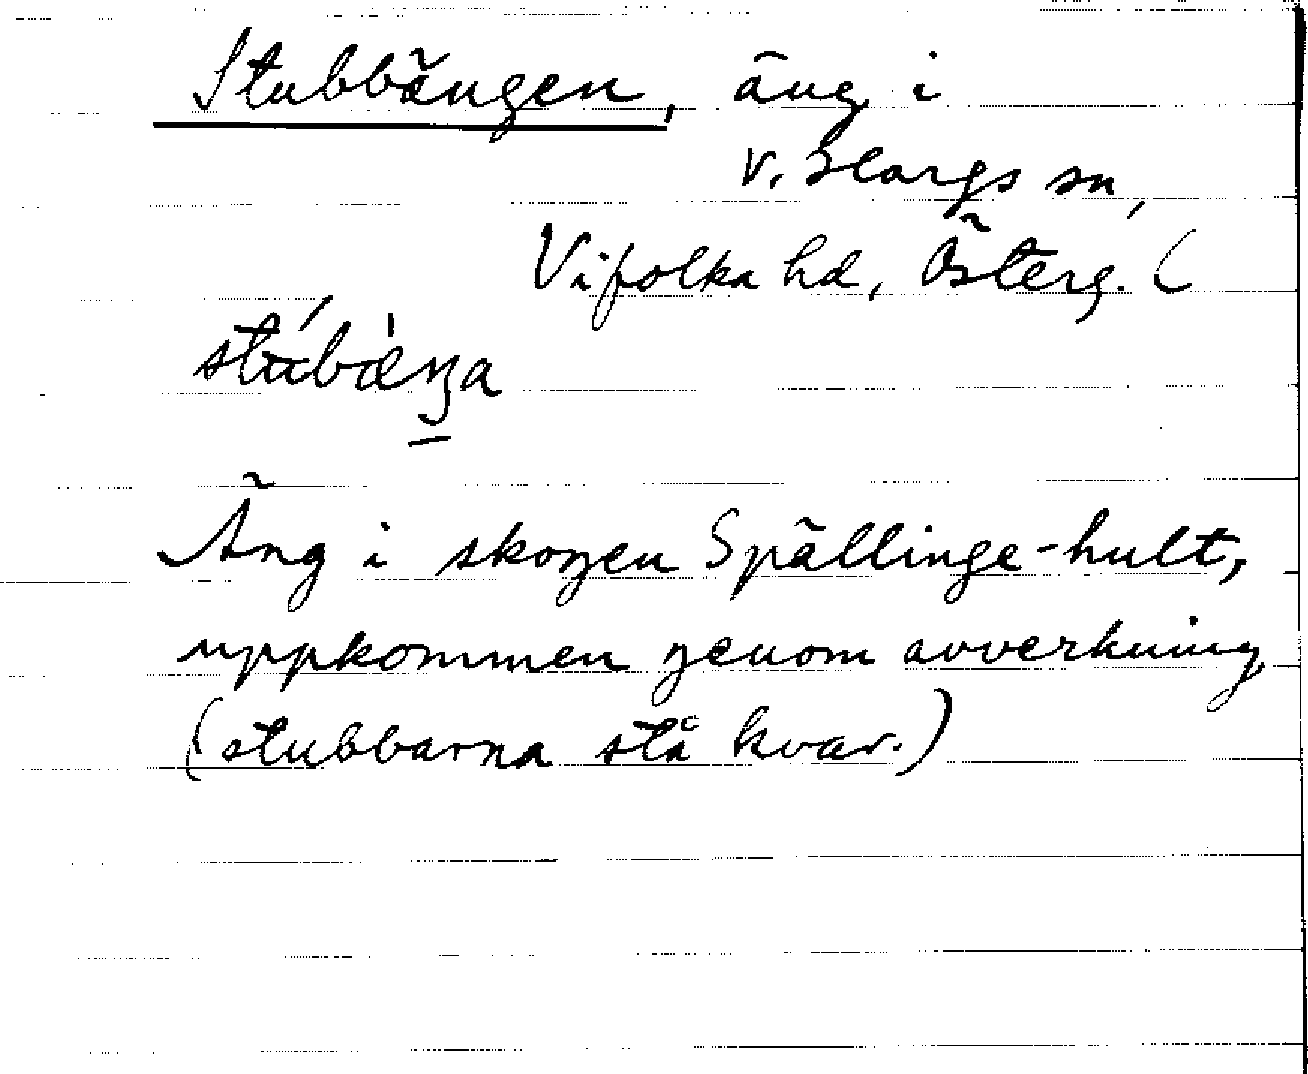 Stubbängen, äng i
v. Hargs sn,
Vifolka hd, Österg. (
stúbæ̀ŋa
Äng i skogen Spällinge-hult,
uppkommen genom avverkning
(stubbarna stå kvar.)